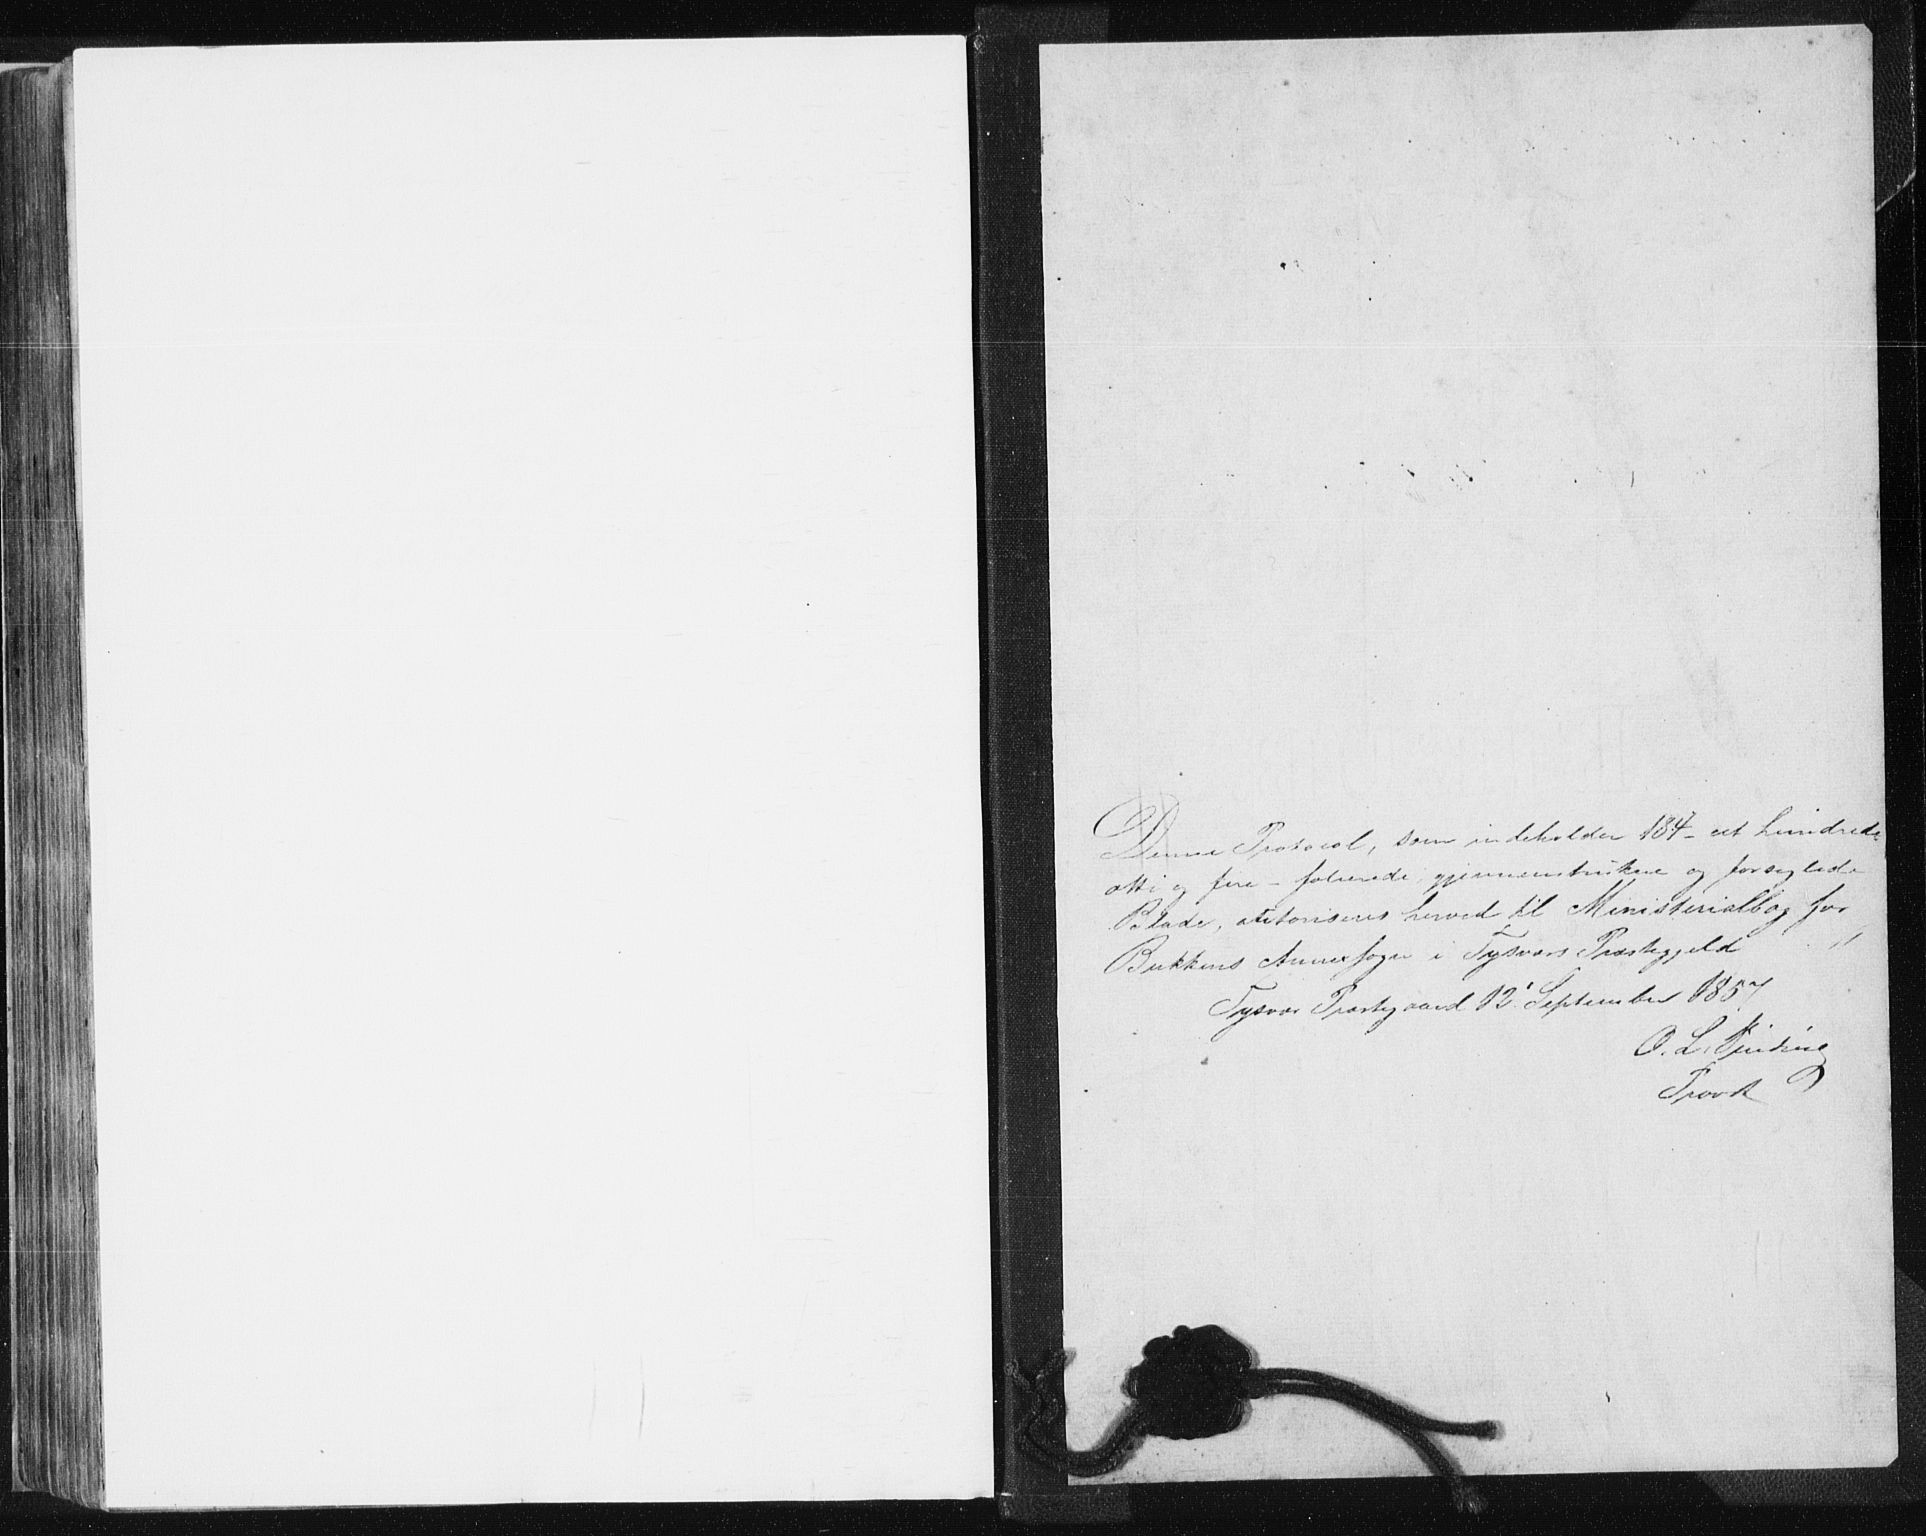 Denne Protocol, som indeholder 184 - et hundrede
otti og fire - folierede, gjennemtrukne og forseglede
Blade, autoriseres herved til Ministerialbog for
Bukkens Annexsogn i Tysvær Præstegjeld
Tysvær Præstegaard 12' September 1857
O. L.
Provst